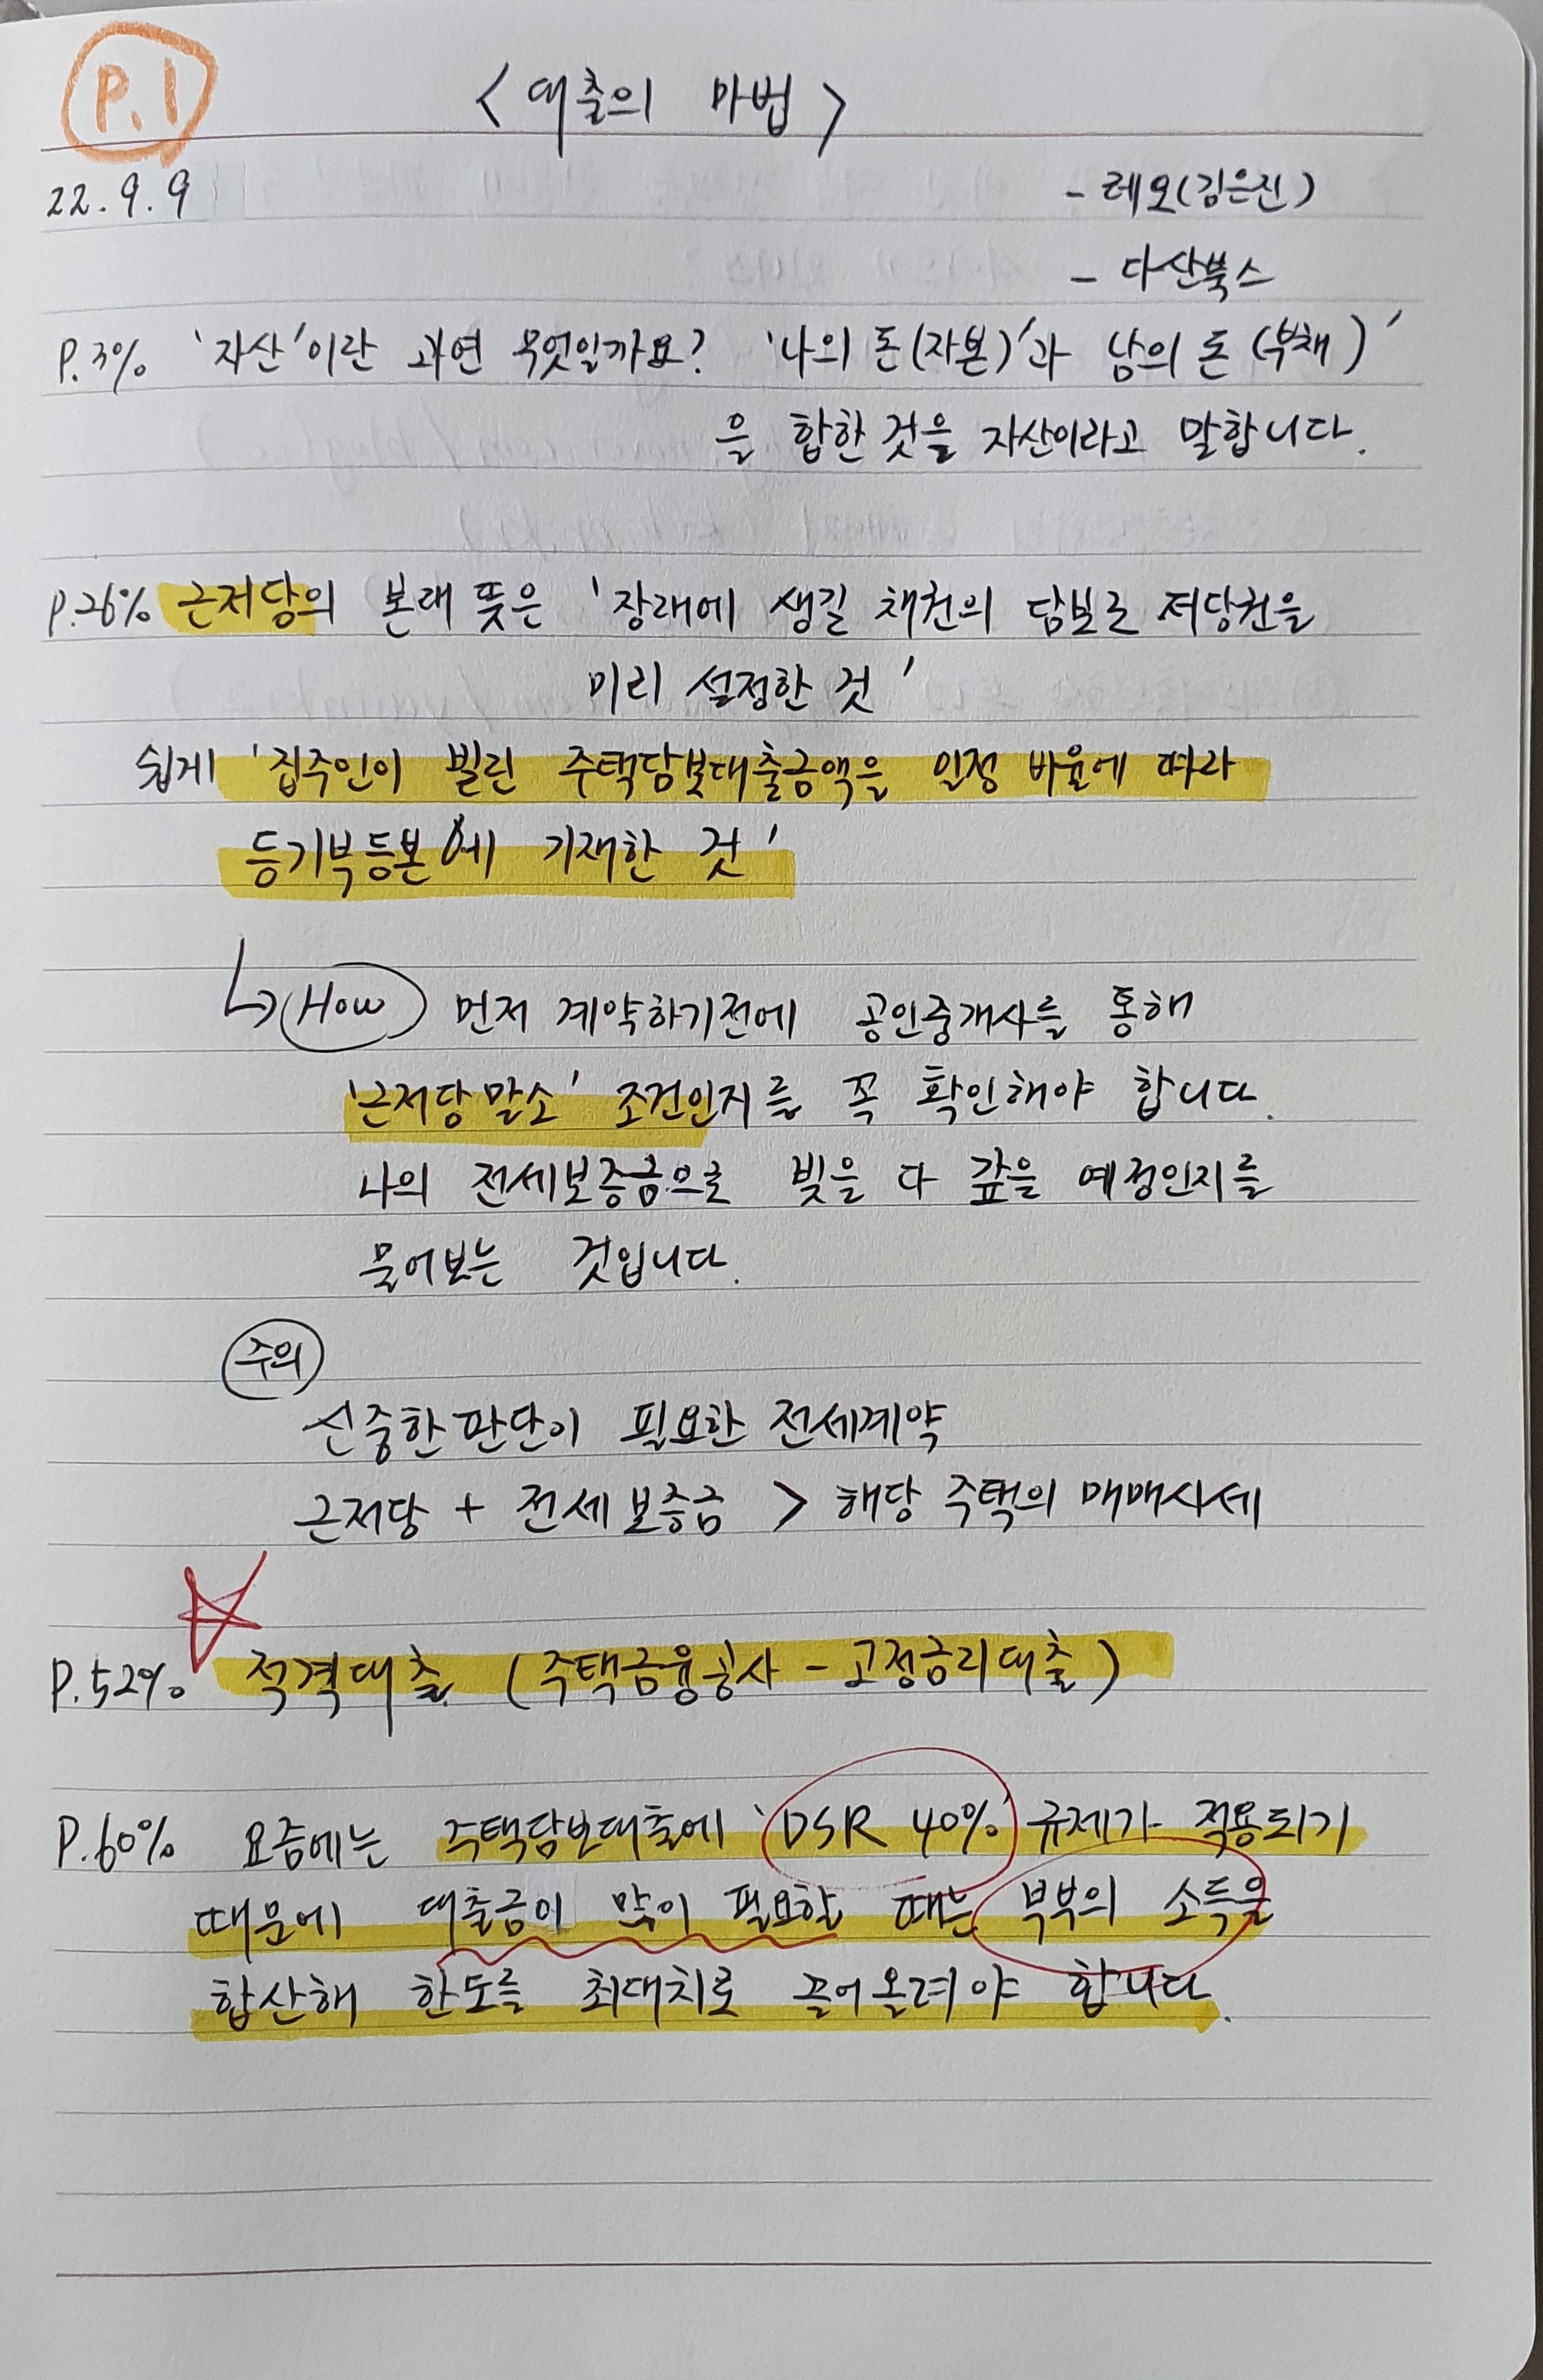 P.1
<대출의 마법>
22.9.9
- 레오(김은진)
- 다산북스
P.3% '자산'이란 과연 무엇일까요? '나의 돈(자본)'과 남의 돈(부채)'
을 합한 것을 자산이라고 말합니다.
P.26% 근저당의 본래 뜻은 '장래에 생길 채권의 담보로 저당권을
미리 설정한 것'
쉽게 '집주인이 빌린 주택담보대출금액을 일정 비율에 따라
등기부등본에 기재한 것'
↳ How 먼저 계약하기전에 공인중개사를 통해
'근저당 말소' 조건인지를 꼭 확인해야 합니다.
나의 전세보증금으로 빚을 다 갚을 예정인지를
물어보는 것입니다.
주의
신중한 판단이 필요한 전세계약
근저당 + 전세보증금 > 해당 주택의 매매시세
P.52% 적격대출 (주택금융공사 - 고정금리대출)
P.60% 요즘에는 주택담보대출에 'DSR 40%' 규제가 적용되기
때문에 대출금이 많이 필요할 때는 부부의 소득을
합산해 한도를 최대치로 끌어올려야 합니다.